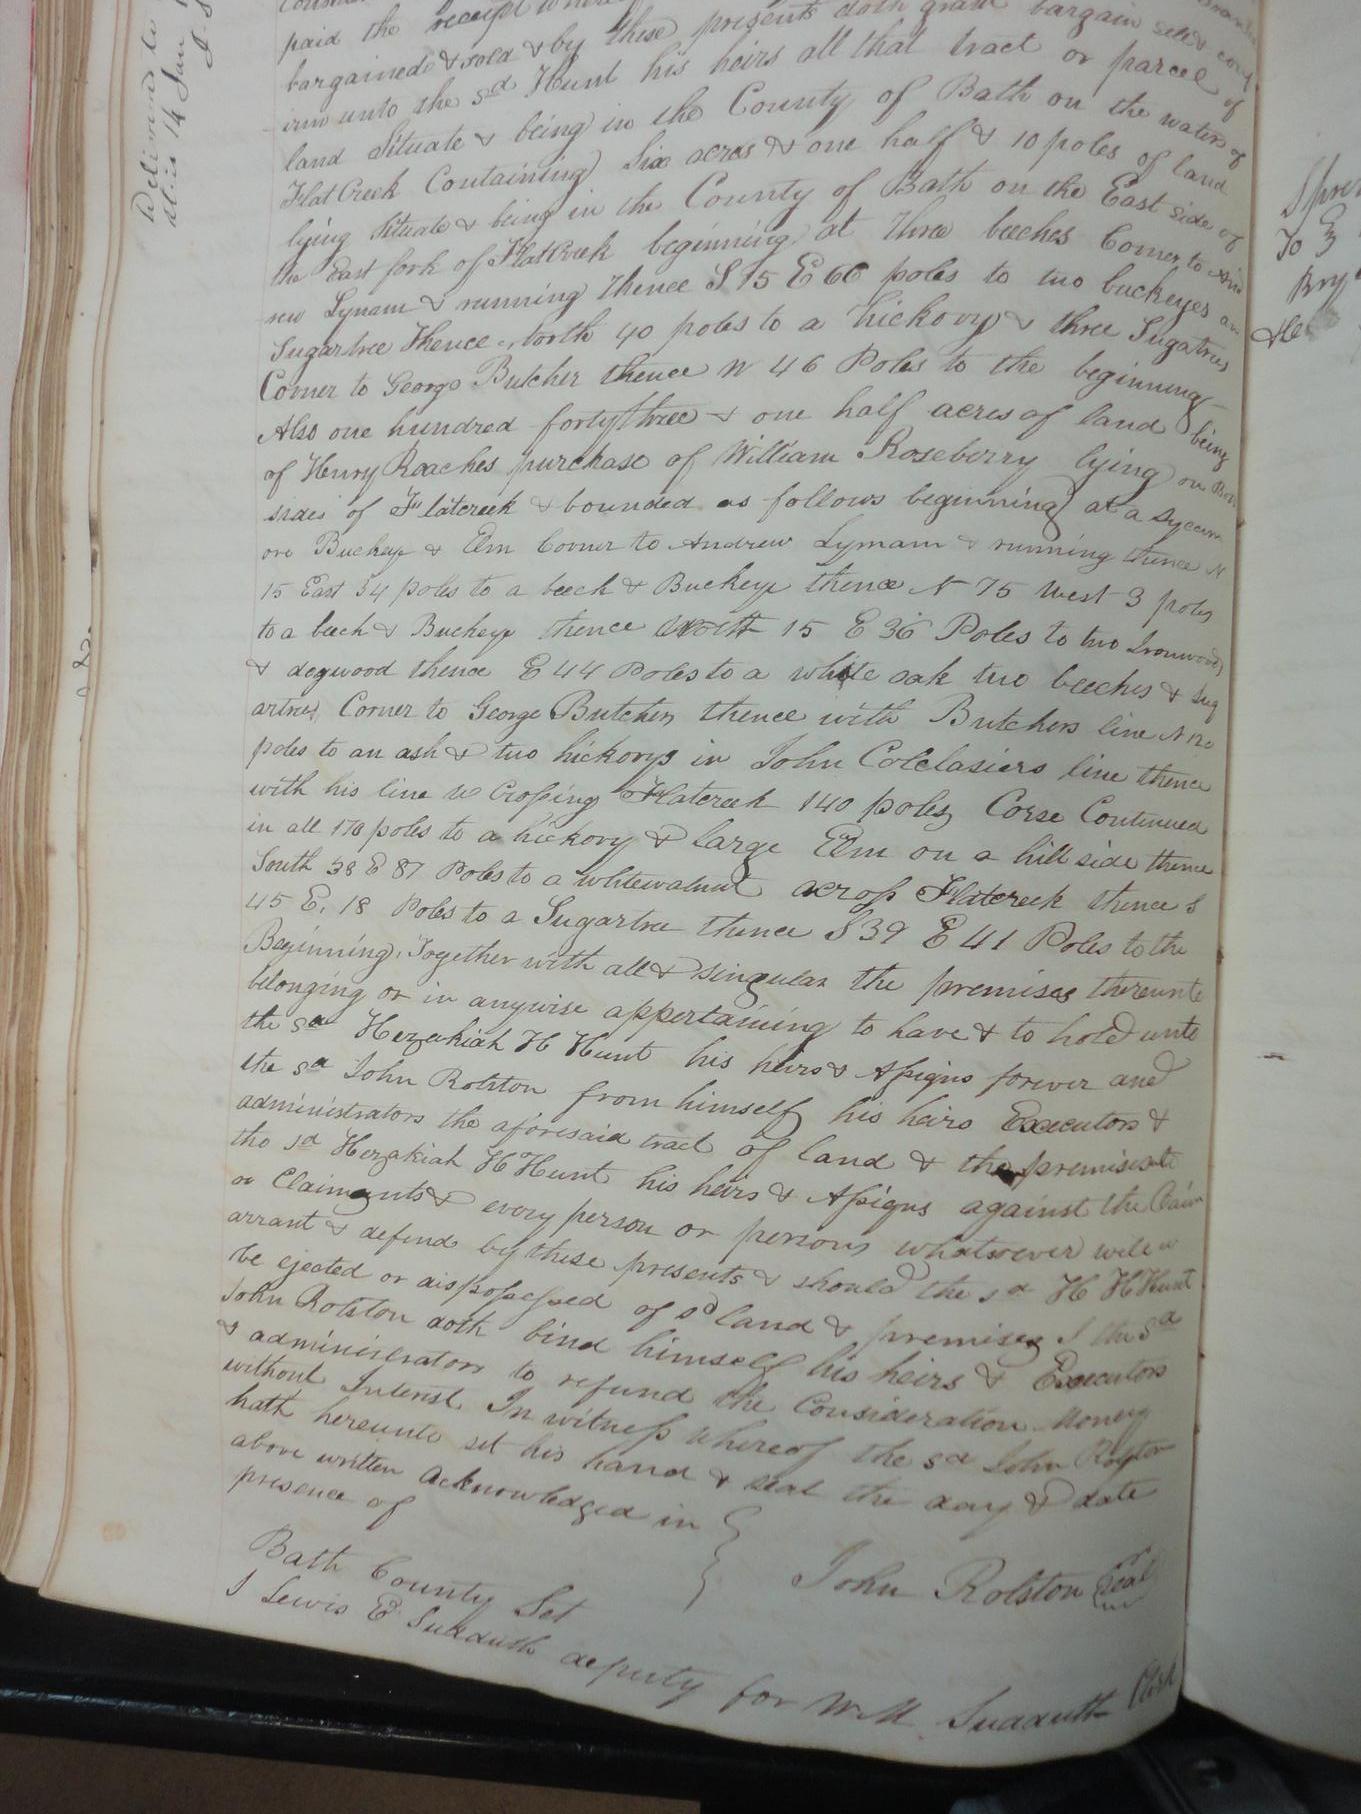 paid the receipt
bargained & sold & by these presents doth grant bargain sell &
irm unto the sd Hunt his heirs all that tract or parcel of
land Situate & being in the County of Bath on the waters of
Flat Creek Containing Six acres & one half & 10 poles of land
lying Situate & being in the County of Bath on the East side of
the East fork of Flatcreek beginning at three beeches Corner to And
rew Lynam & running thence S 15 E 66 poles to two buckeyes an
Sugartree thence North 40 poles to a hickory & three Sugatrees
Corner to George Butcher thence W 46 Poles to the beginning
Also one hundred fortythree & one half acres of land being
of Henry Roaches purchase of William Roseberry lying on Both
sides of Flatcreek & bounded as follows beginning at a Sycam
ore Buckeye & Elm Corner to Andrew Lynam & running thence N
15 East 34 poles to a beech & Buckeye thence N 75 West 3 poles
to a beech & Buckeye thence North 15 E 36 Poles to two Ironwoods
& dogwood thence E 44 Poles to a white oak two beeches & Sug
artrees Corner to George Butcher thence with Butchers line N 120
poles to an ash & two hickorys in John Colclasiers line thence
with his line W Crossing Flatcreek 140 poles, Corse Continued
in all 170 poles to a hickory & large Elm on a hill side thence
South 38 E 87 Poles to a whitewalnut across Flatcreek thence S
45 E. 18 Poles to a Sugartree thence S 39 E 41 Poles to the
Beginning. Together with all & singular the premises thereunto
belonging or in anywise appertaining to have & to hold unto
the sd Hezekiah H Hunt his heirs & Assigns forever and
the sd John Rolston from himself his heirs Executors &
administrators the aforesaid tract of land & the premises to
the sd Hezakiah H Hunt his heirs & Assigns against the Claim
or Claimants & every person or persons whatsoever will w
arrant & defend by these presents & should the sd H H Hunt
be ejected or dispossessed of sd land & premises I the sd
John Rolston doth bind himself his heirs & Executors
& administrators to refund the Consideration Money
without Interest In witness whereof the sd John Rolston
hath hereunto set his hand & seal the day & date
above written Acknowledged in
presence of
John Rolston Seal
Bath County Set
I Lewis E Sudduth deputy for W M Suddutt Clerk
Delivered to
14 Jan